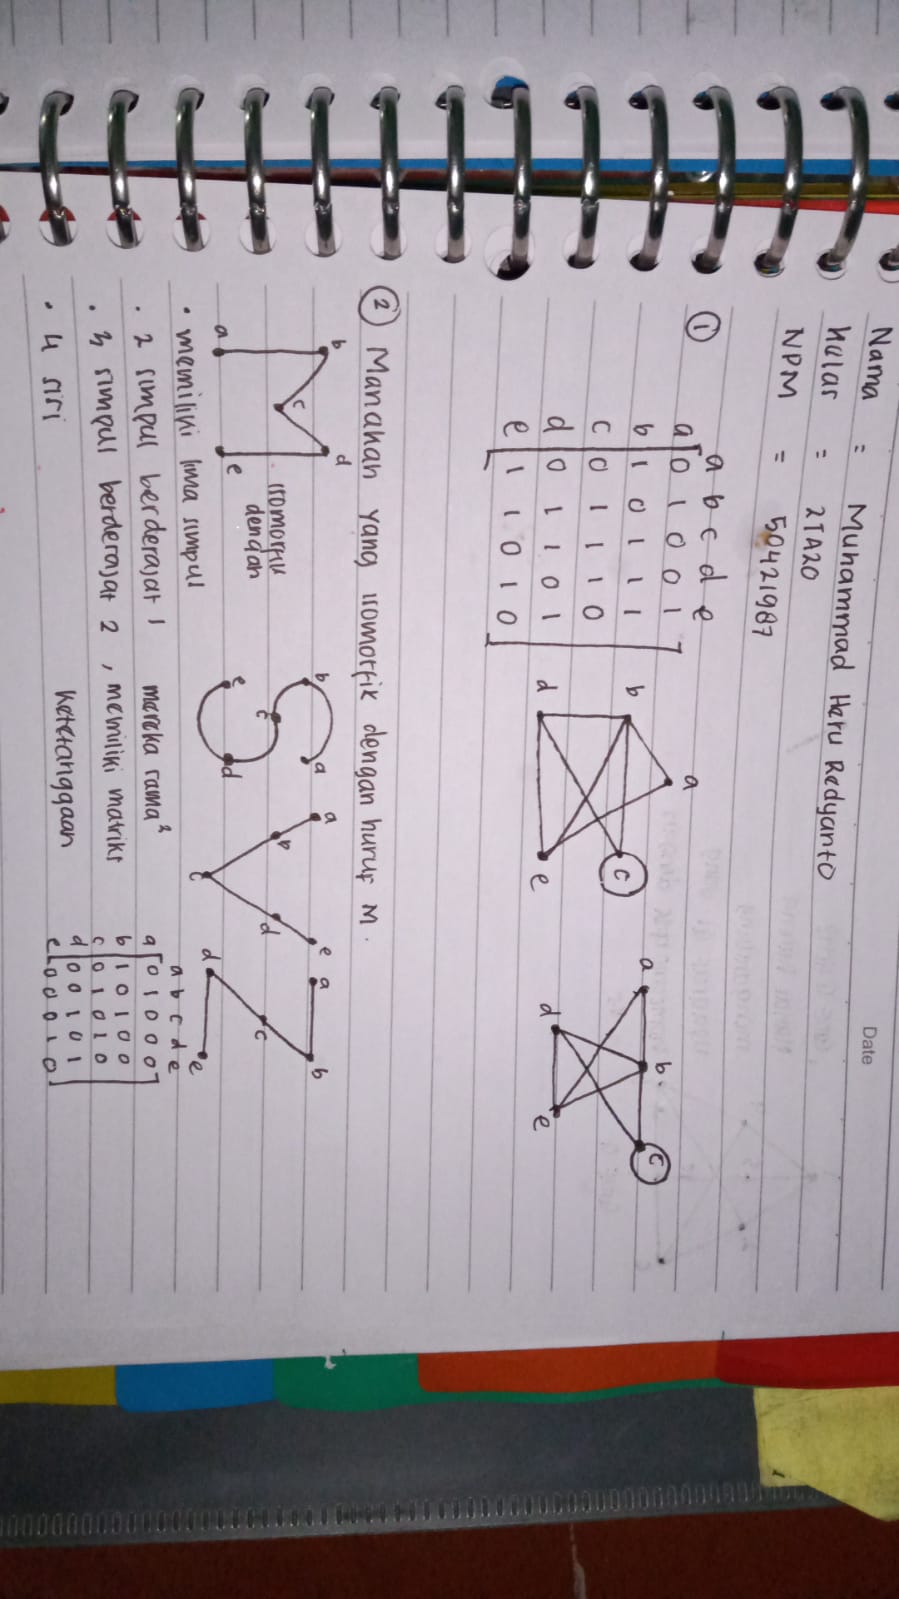 Date
Nama = Muhammad Heru Redyanto
Kelas = 2IA20
NPM = 50421987
①
a b c d e
a 0 1 0 0 1
b 1 0 1 1 1
c 0 1 1 1 0
d 0 1 1 0 1
e 1 1 0 1 0
a
b
c
d
e
a
b
c
d
e
② Manakah yang isomorfik dengan huruf M.
b
d
c
a
e
isomorfik
dengan
b
a
c
e
d
a
e
b
d
c
a
b
c
d
e
• memiliki lima simpul
• 2 simpul berderajat 1
• 3 simpul berderajat 2
• 4 sisi
mereka sama²
, memiliki matriks
ketetanggaan
a b c d e
a 0 1 0 0 0
b 1 0 1 0 0
c 0 1 0 1 0
d 0 0 1 0 1
e 0 0 0 1 0